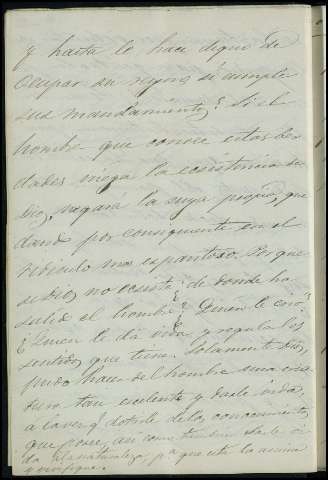 y hasta lo hace digno de
ocupar su regno si cumple
sus mandamientos? Si el
hombre que conoce estas ver
dades niega la ecsistencia de
Dios, negara la suya propia, que
dando por consiguiente en el
ridiculo mas espantoso. Porque
si Dios no ecsiste ¿de donde ha
salido el hombre? ¿Quien le crió?
¿Quien le da vida y regula los
sentidos que tiene. Solamente Dios
pudo hacer del hombre una cria
tura tan escelente y darle vida,
y dotarle de los conocimientos
que posee, asi como tambien darle vi
da a la naturaleza, pa que esta la anima
y vivifique.